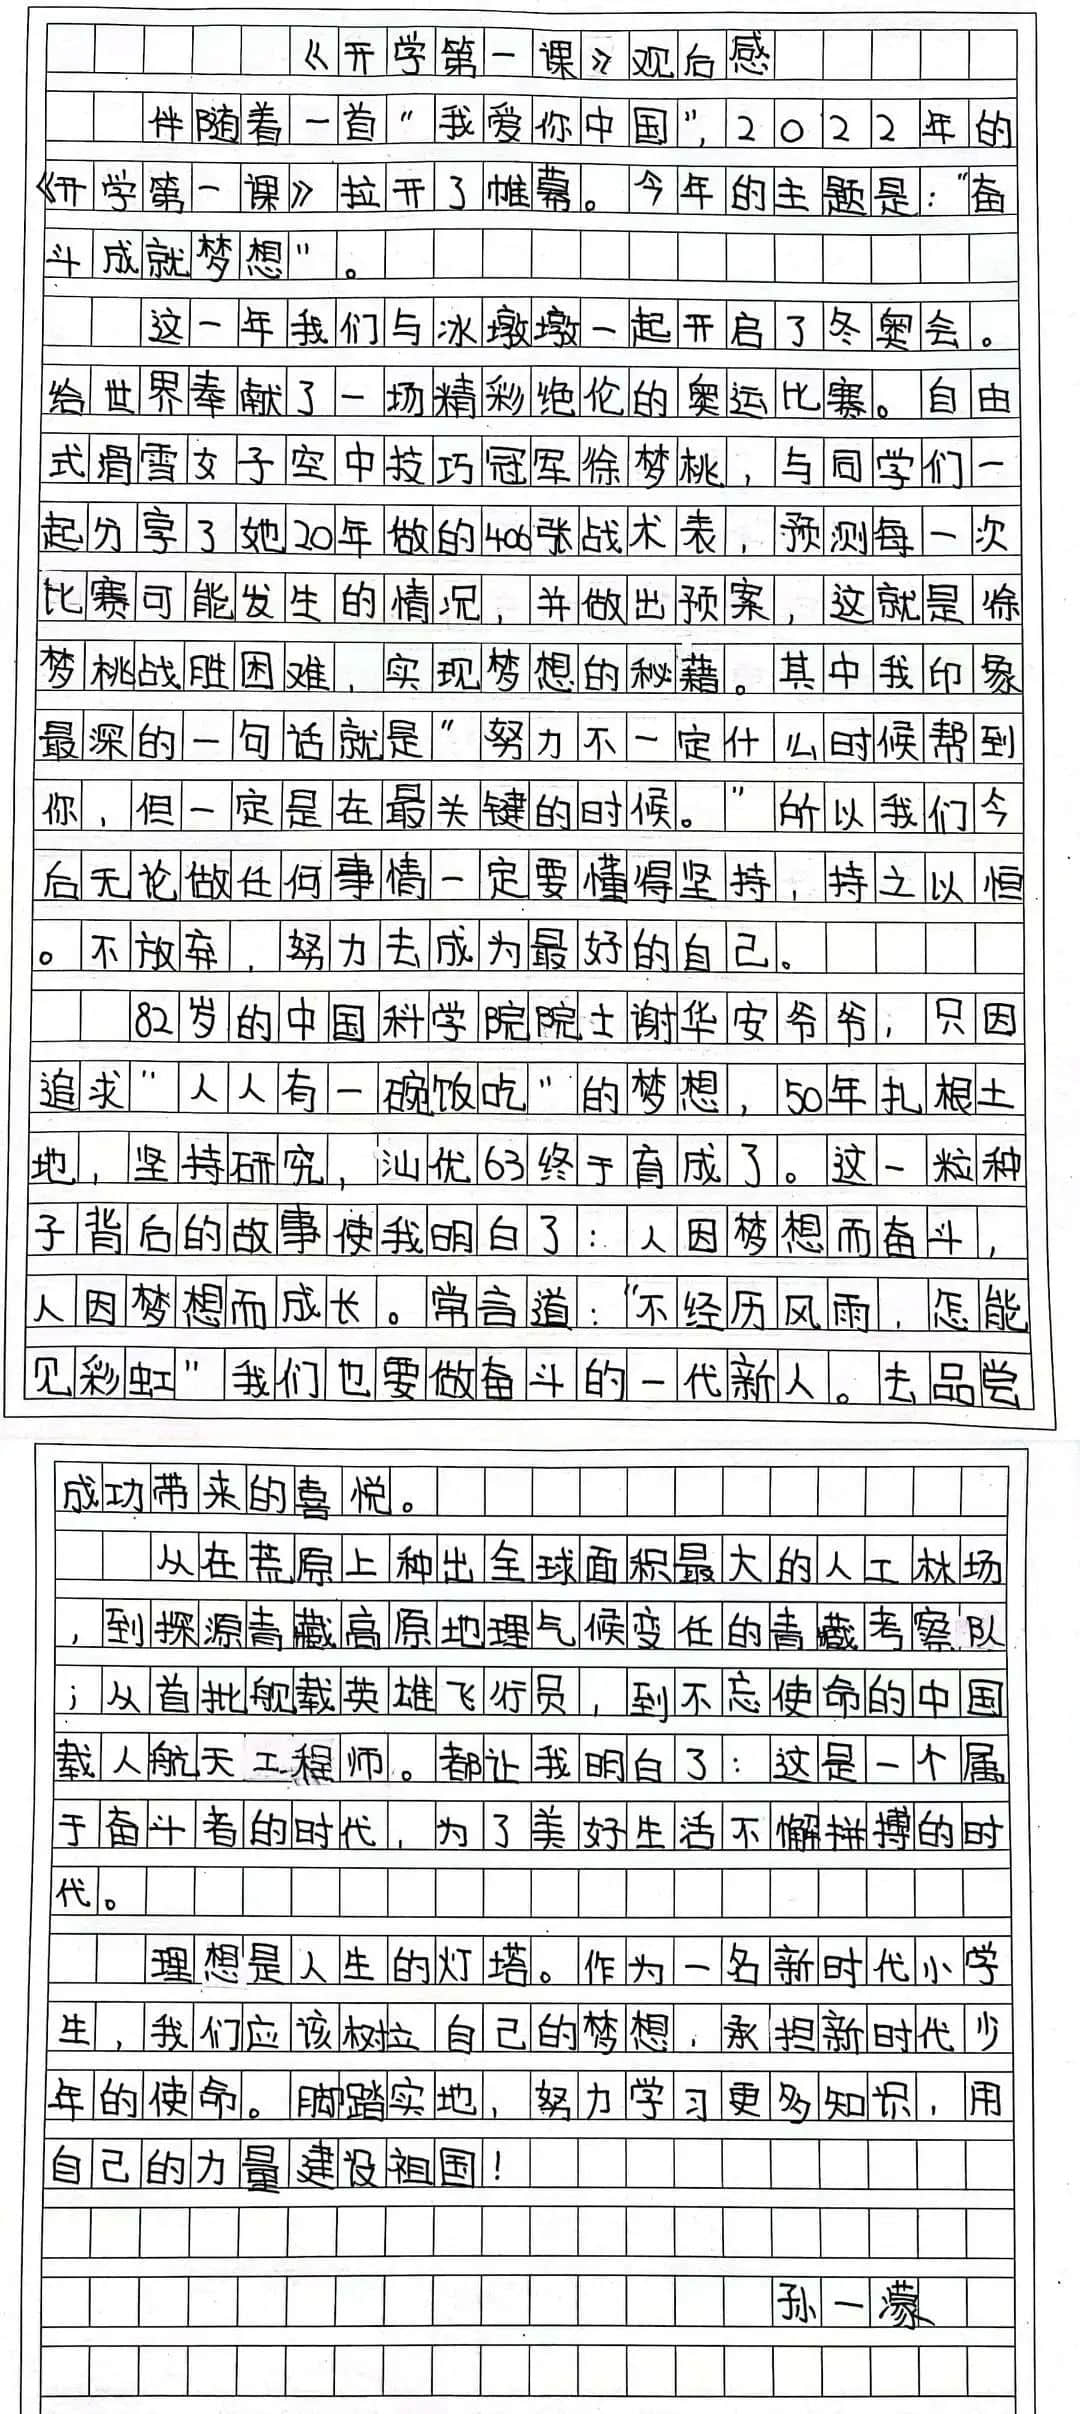 《开学第一课》观后感
伴随着一首“我爱你中国”，2022年的
《开学第一课》拉开了帷幕。今年的主题是：“奋
斗成就梦想”。
这一年我们与冰墩墩一起开启了冬奥会。
给世界奉献了一场精彩绝伦的奥运比赛。自由
式滑雪女子空中技巧冠军徐梦桃，与同学们一
起分享了她20年做的406张战术表，预测每一次
比赛可能发生的情况，并做出预案，这就是徐
梦桃战胜困难，实现梦想的秘籍。其中我印象
最深的一句话就是“努力不一定什么时候帮到
你，但一定是在最关键的时候。”所以我们今
后无论做任何事情一定要懂得坚持，持之以恒
。不放弃，努力去成为最好的自己。
82岁的中国科学院院士谢华安爷爷，只因
追求“人人有一碗饭吃”的梦想，50年扎根土
地，坚持研究，汕优63终于育成了。这一粒种
子背后的故事使我明白了：人因梦想而奋斗，
人因梦想而成长。常言道：“不经历风雨，怎能
见彩虹”我们也要做奋斗的一代新人。去品尝
成功带来的喜悦。
从在荒原上种出全球面积最大的人工林场
，到探源青藏高原地理气候变任的青藏考察队
；从首批舰载英雄飞行员，到不忘使命的中国
载人航天工程师。都让我明白了：这是一个属
于奋斗者的时代，为了美好生活不懈拼搏的时
代。
理想是人生的灯塔。作为一名新时代小学
生，我们应该树立自己的梦想，承担新时代少
年的使命。脚踏实地，努力学习更多知识，用
自己的力量建设祖国！
孙一濛